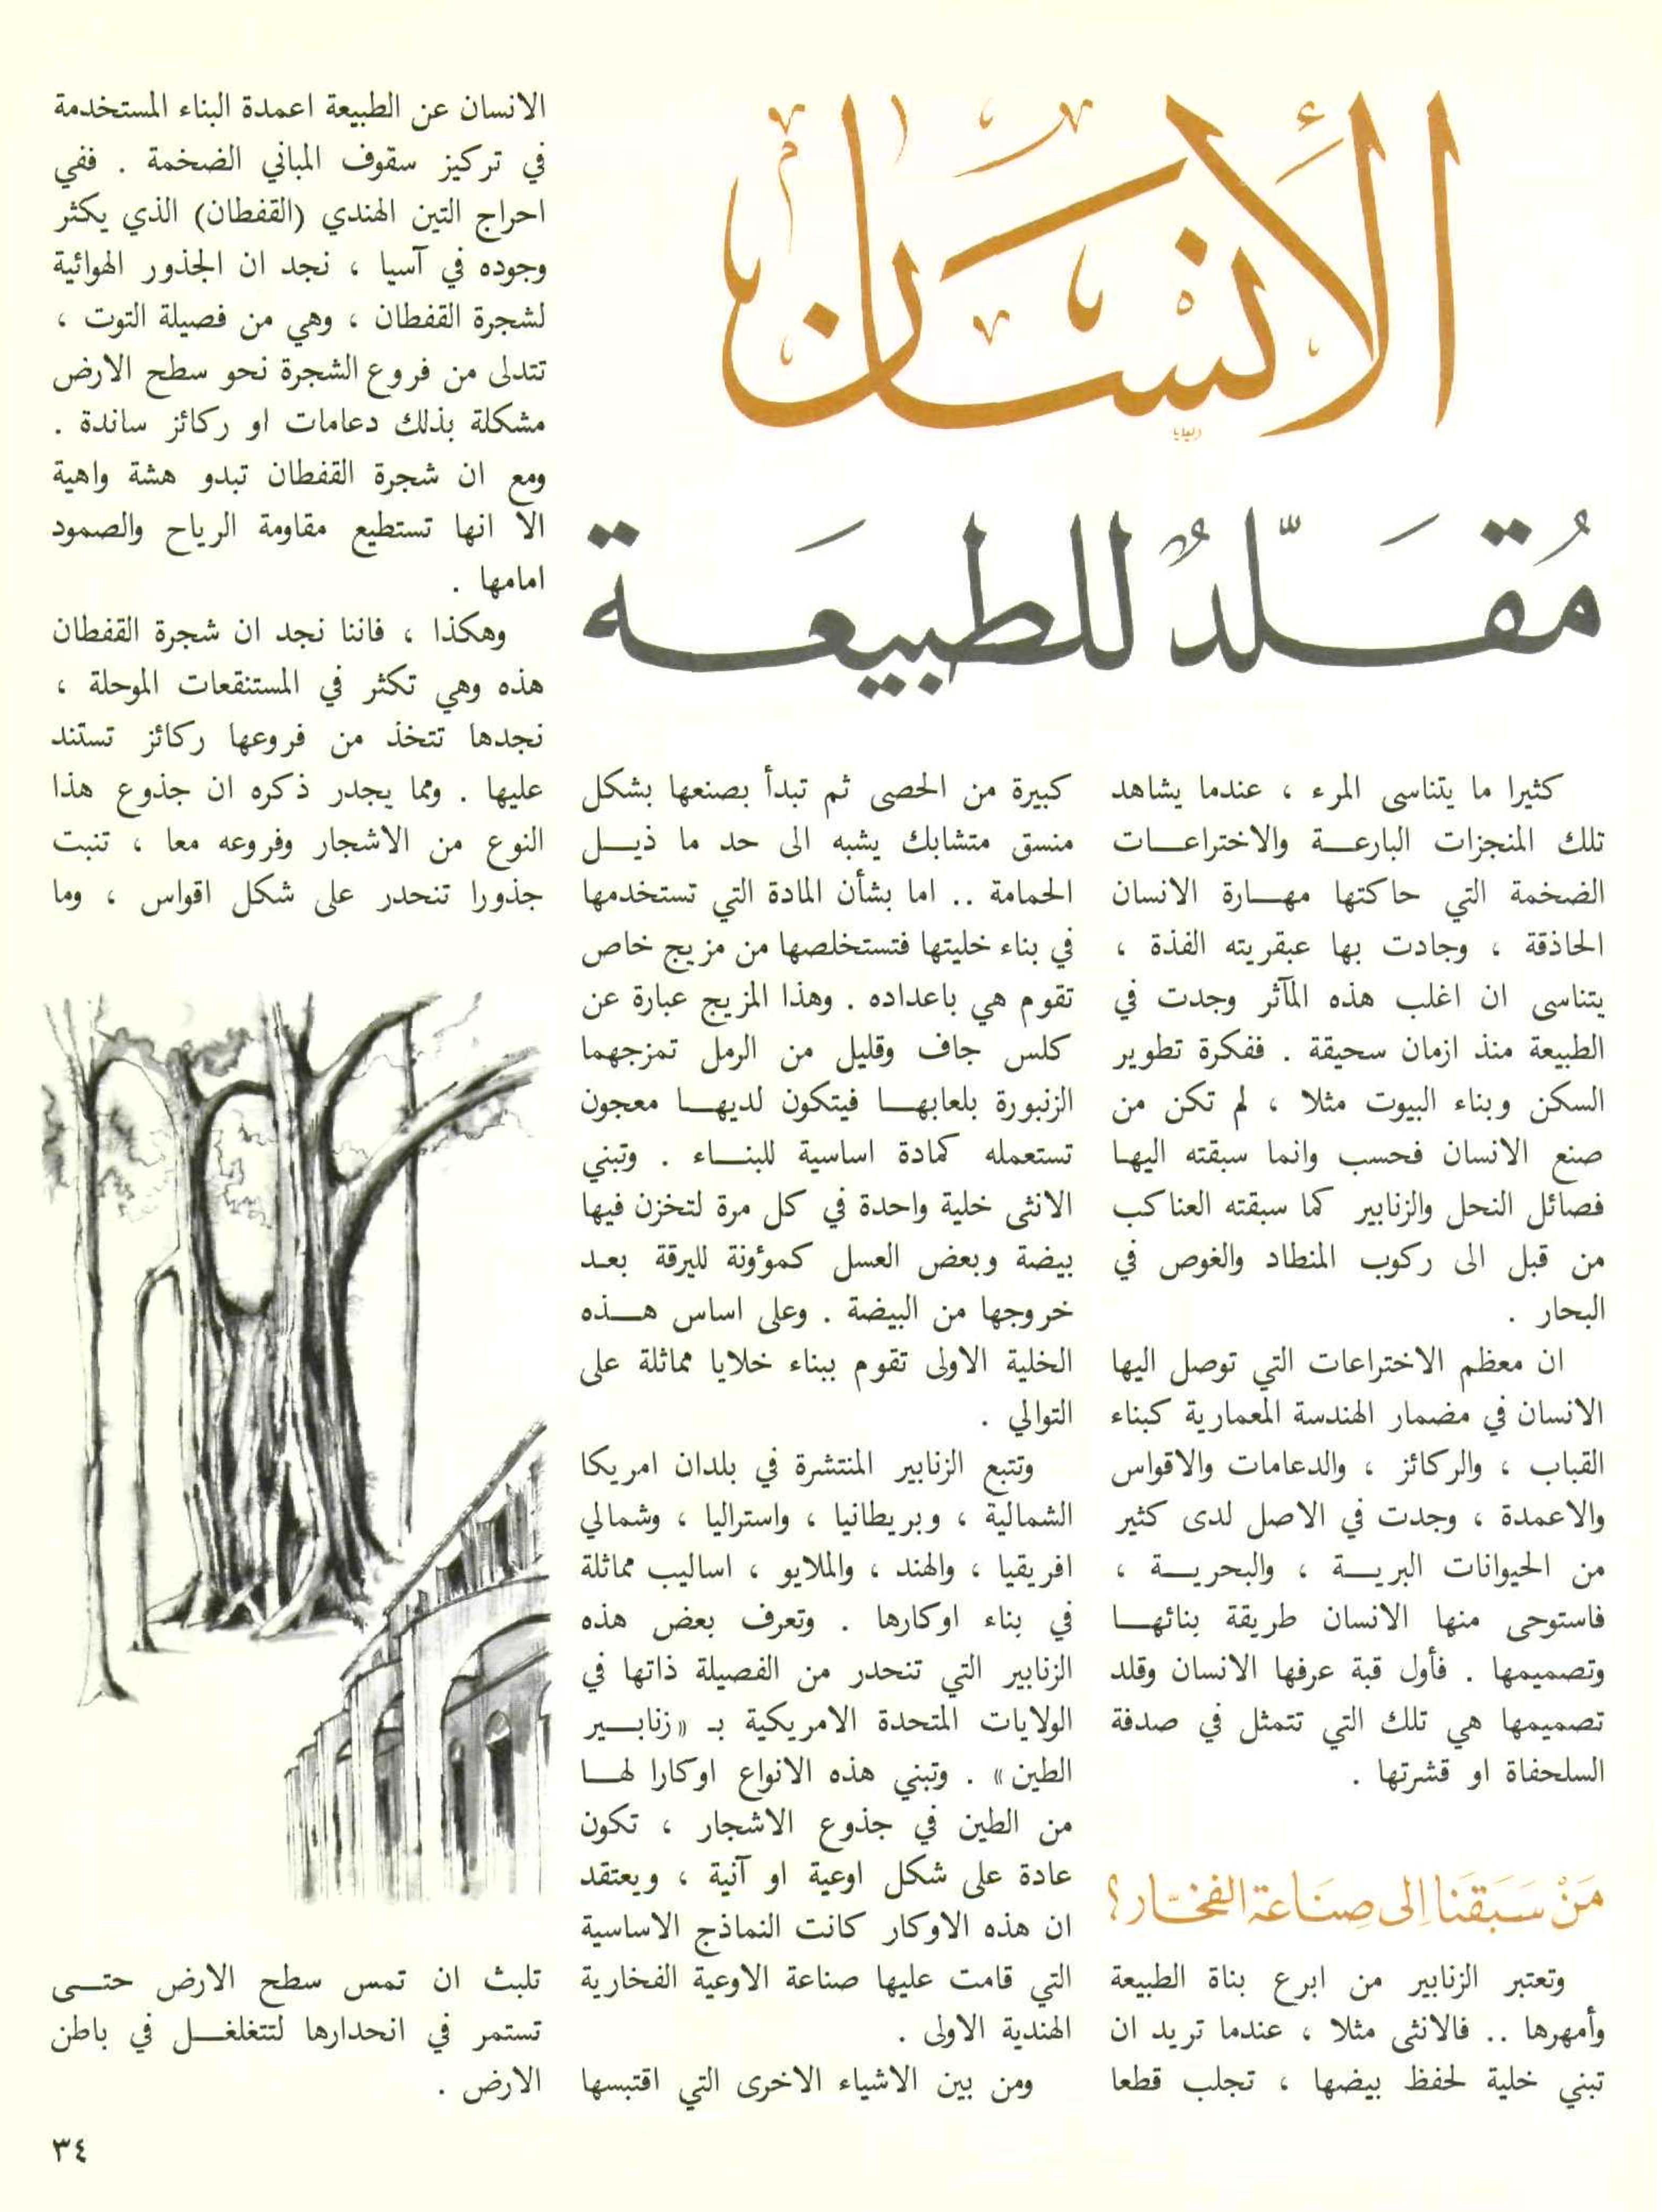 الإنسان
مُقَلّدٌ للطبيعَة
كثيرا ما يتناسى المرء ، عندما يشاهد
تلك المنجزات البارعة والاختراعات
الضخمة التي حاكتها مهارة الانسان
الحاذقة ، وجادت بها عبقريته الفذة ،
يتناسى ان اغلب هذه المآثر وجدت في
الطبيعة منذ ازمان سحيقة . ففكرة تطوير
السكن وبناء البيوت مثلا ، لم تكن من
صنع الانسان فحسب وانما سبقته اليها
فصائل النحل والزنابير كما سبقته العناكب
من قبل الى ركوب المنطاد والغوص في
البحار .
ان معظم الاختراعات التي توصل اليها
الانسان في مضمار الهندسة المعمارية كبناء
القباب ، والركائز ، والدعامات والاقواس
والاعمدة ، وجدت في الاصل لدى كثير
من الحيوانات البرية ، والبحرية ،
فاستوحى منها الانسان طريقة بنائها
وتصميمها . فأول قبة عرفها الانسان وقلد
تصميمها هي تلك التي تتمثل في صدفة
السلحفاة او قشرتها .
مَنْ سَبَقَنَا إلى صِنَاعة الفخّار؟
وتعتبر الزنابير من ابرع بناة الطبيعة
وأمهرها .. فالانثى مثلا ، عندما تريد ان
تبني خلية لحفظ بيضها ، تجلب قطعا
كبيرة من الحصى ثم تبدأ بصنعها بشكل
منسق متشابك يشبه الى حد ما ذيل
الحمامة .. اما بشأن المادة التي تستخدمها
في بناء خليتها فتستخلصها من مزيج خاص
تقوم هي باعداده . وهذا المزيج عبارة عن
كلس جاف وقليل من الرمل تمزجهما
الزنبورة بلعابها فيتكون لديها معجون
تستعمله كمادة اساسية للبناء . وتبني
الانثى خلية واحدة في كل مرة لتخزن فيها
بيضة وبعض العسل كموؤنة لليرقة بعد
خروجها من البيضة . وعلى اساس هذه
الخلية الاولى تقوم ببناء خلايا مماثلة على
التوالي .
وتتبع الزنابير المنتشرة في بلدان امريكا
الشمالية ، وبريطانيا ، واستراليا ، وشمالي
افريقيا ، والهند ، والملايو ، اساليب مماثلة
في بناء اوكارها . وتعرف بعض هذه
الزنابير التي تنحدر من الفصيلة ذاتها في
الولايات المتحدة الامريكية بـ «زنابير
الطين» . وتبني هذه الانواع اوكارا لها
من الطين في جذوع الاشجار ، تكون
عادة على شكل اوعية او آنية ، ويعتقد
ان هذه الاوكار كانت النماذج الاساسية
التي قامت عليها صناعة الاوعية الفخارية
الهندية الاولى .
ومن بين الاشياء الاخرى التي اقتبسها
الانسان عن الطبيعة اعمدة البناء المستخدمة
في تركيز سقوف المباني الضخمة . ففي
احراج التين الهندي (القفطان) الذي يكثر
وجوده في آسيا ، نجد ان الجذور الهوائية
لشجرة القفطان ، وهي من فصيلة التوت ،
تتدلى من فروع الشجرة نحو سطح الارض
مشكلة بذلك دعامات او ركائز ساندة .
ومع ان شجرة القفطان تبدو هشة واهية
الا انها تستطيع مقاومة الرياح والصمود
امامها .
وهكذا ، فاننا نجد ان شجرة القفطان
هذه وهي تكثر في المستنقعات الموحلة ،
نجدها تتخذ من فروعها ركائز تستند
عليها . ومما يجدر ذكره ان جذوع هذا
النوع من الاشجار وفروعه معا ، تنبت
جذورا تنحدر على شكل اقواس ، وما
تلبث ان تمس سطح الارض حتى
تستمر في انحدارها لتتغلغل في باطن
الارض .
٣٤